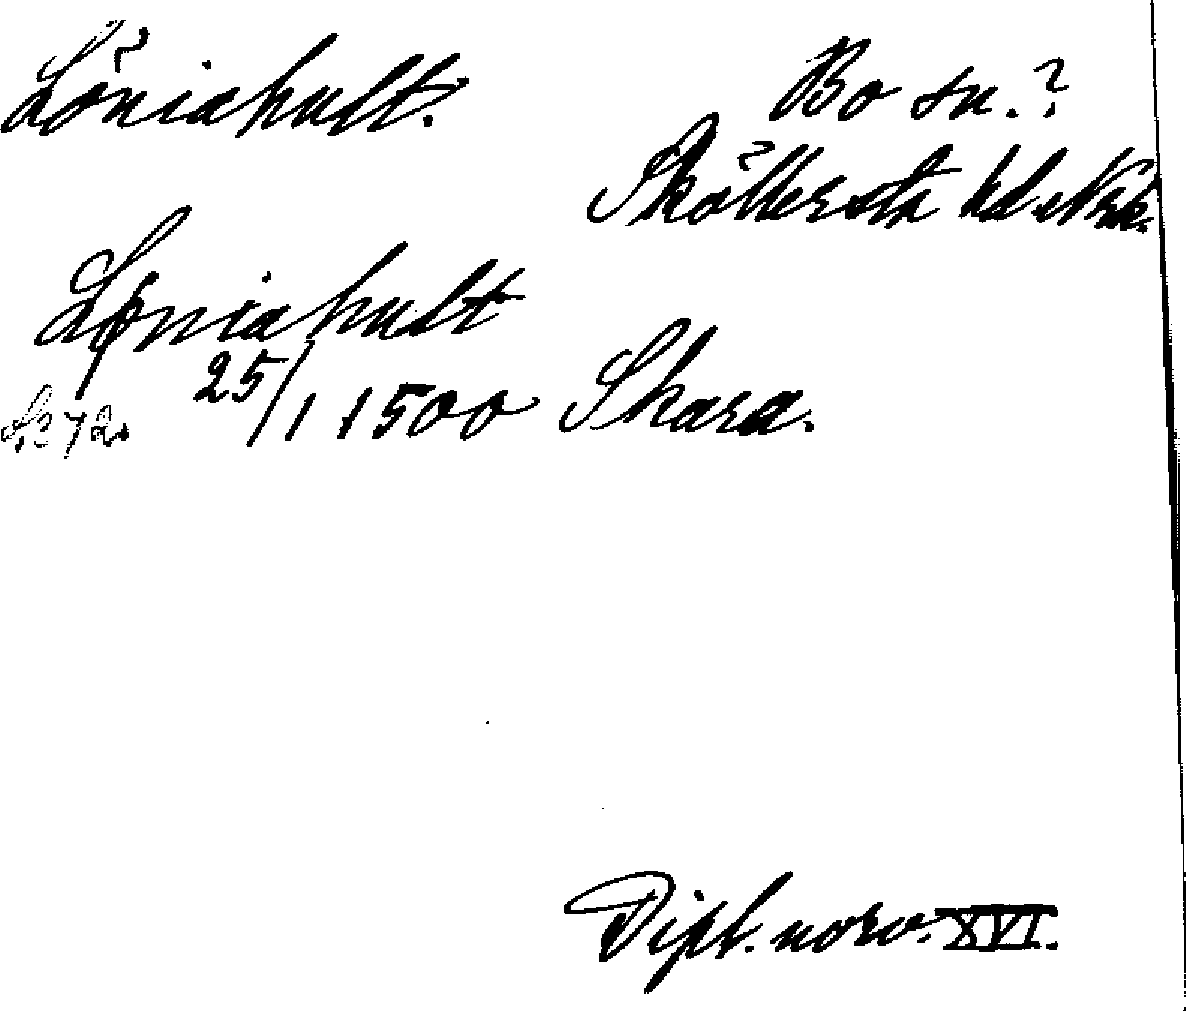 Löniahult.
Bo sn.?
Sköllersta hd Nrk.
Løniahult
25/1 1500 Skara.
S. 372.
Dipl. norv. XVI.